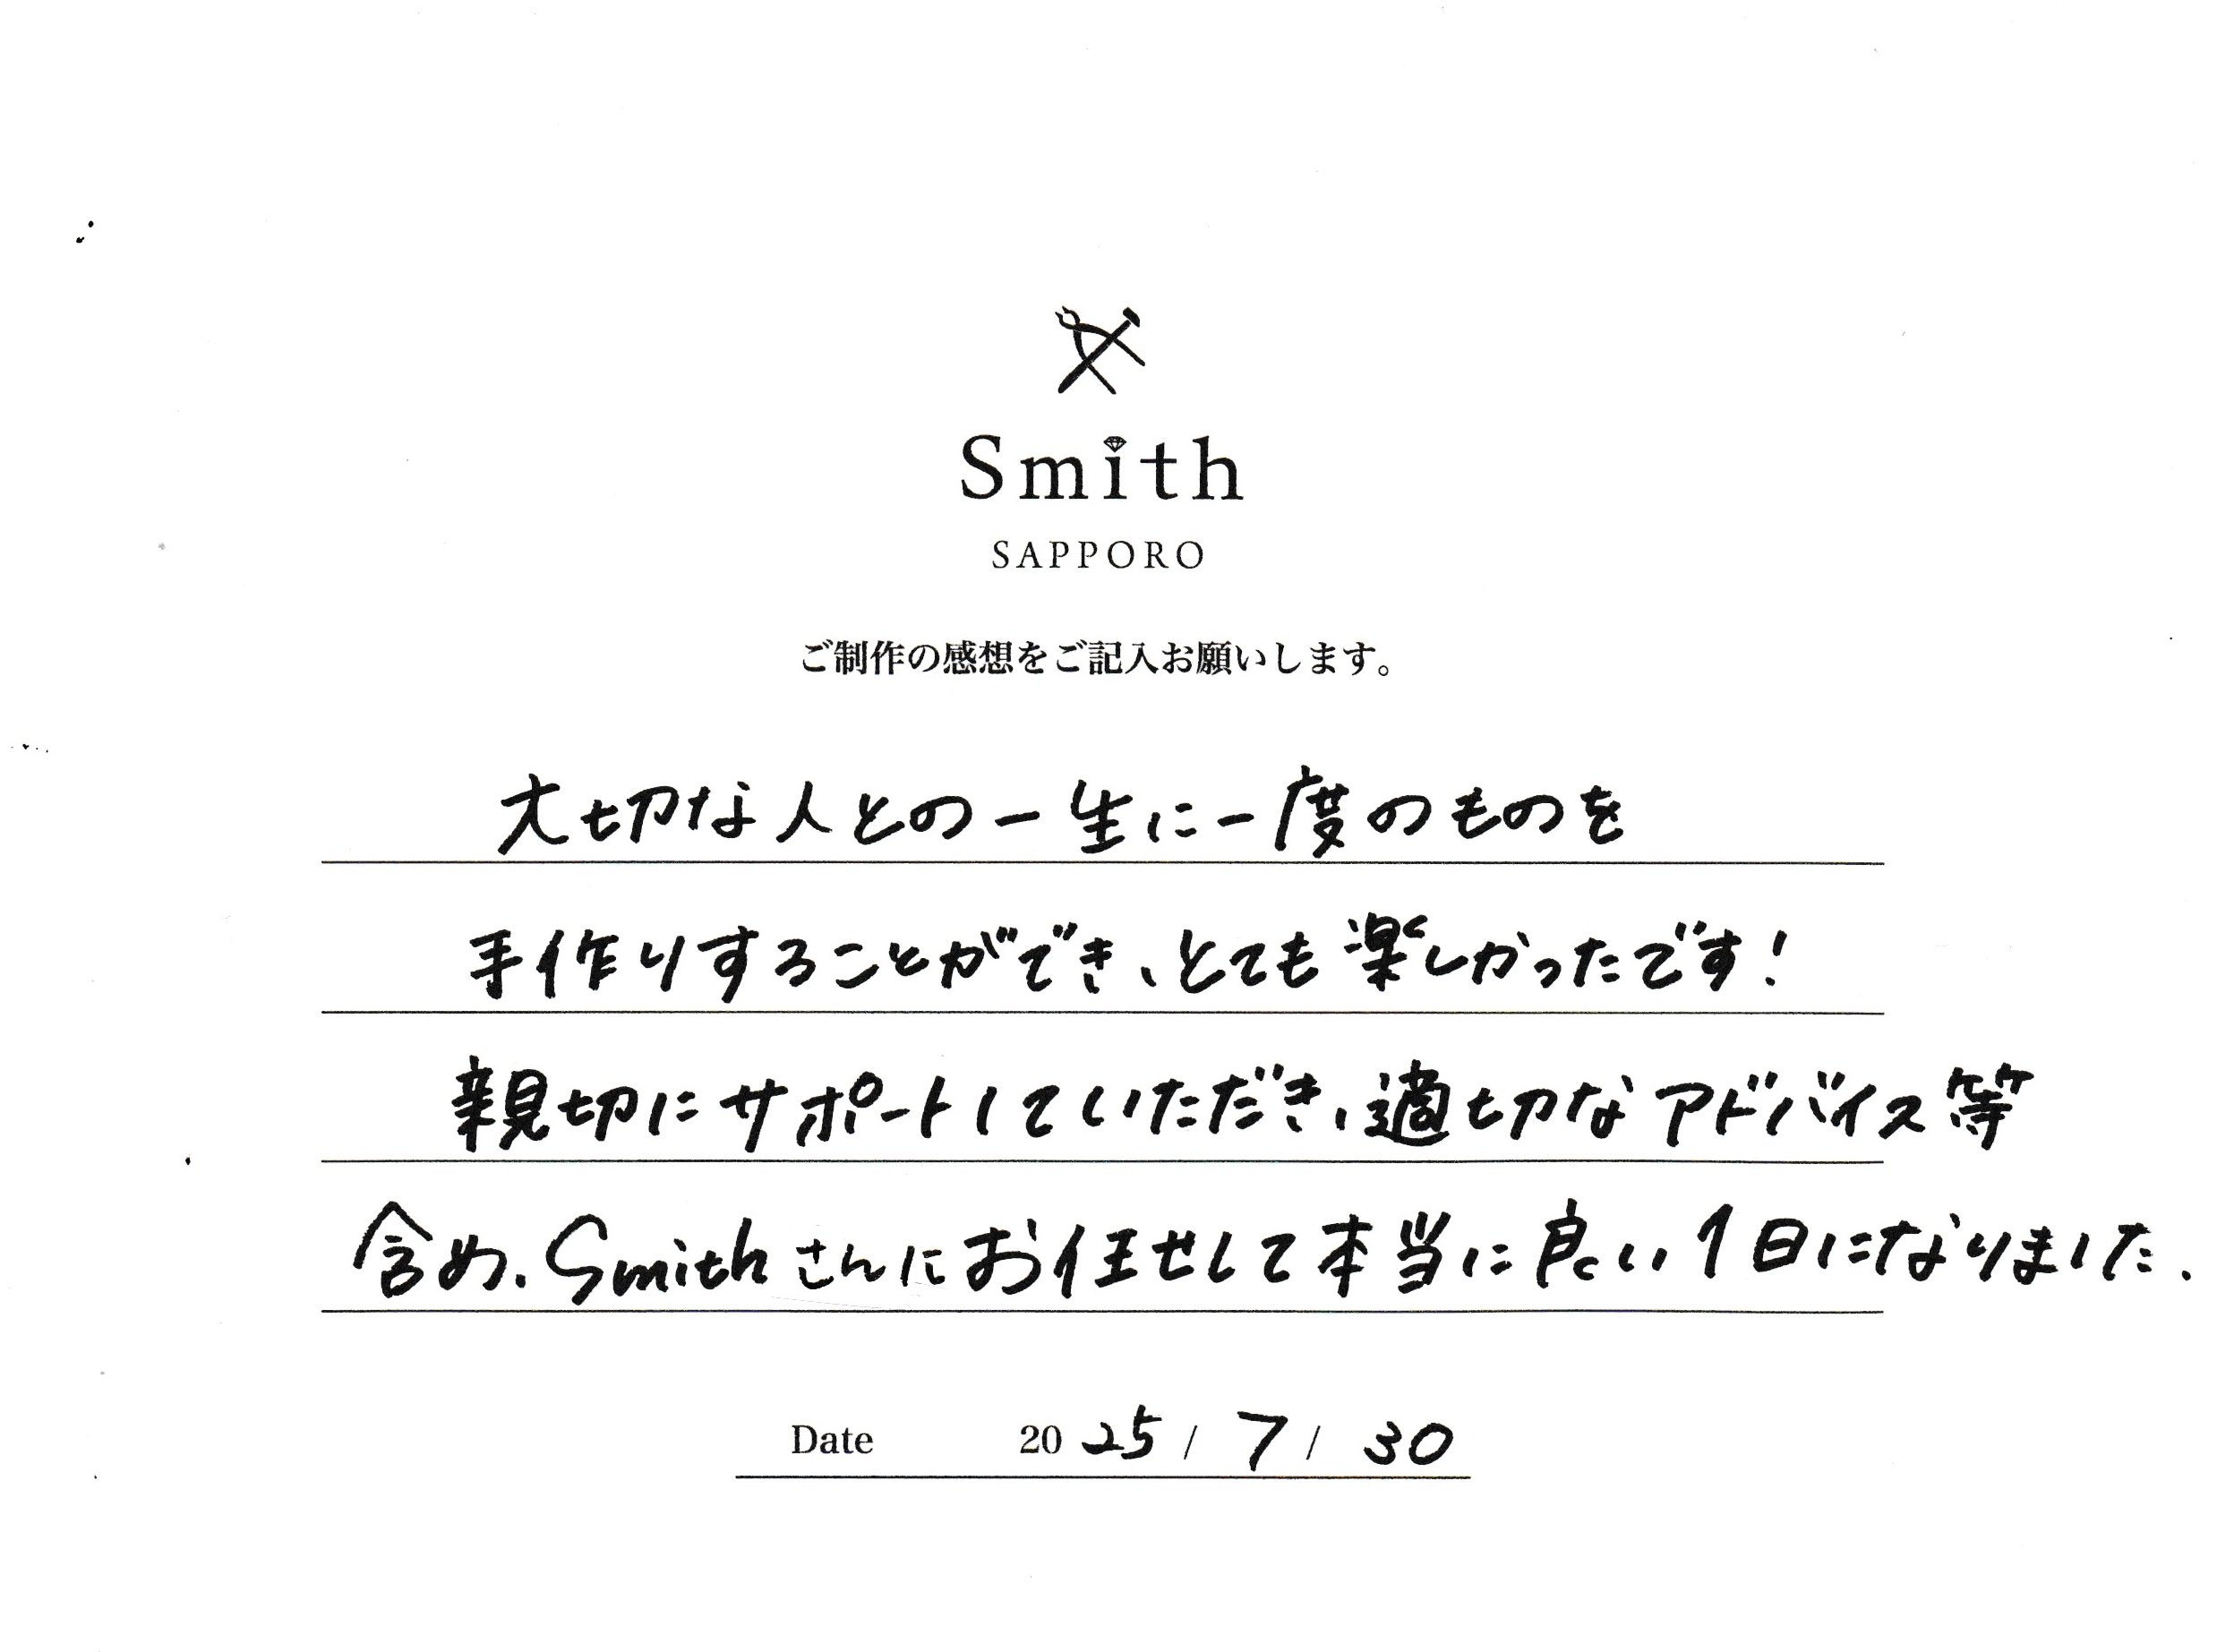 Smith
SAPPORO
ご制作の感想をご記入お願いします。
大切な人との一生に一度のものを
手作りすることができ、とても楽しかったです!
親切にサポートしていただき、適切なアドバイス等
含め、Smithさんにお任せして本当に良い1日になりました.
Date 2025/7/30